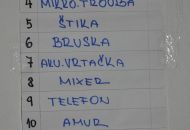 4 MIKRO.TROUBA
5 ŠTIKA
6 BRUSKA
7 AKU.VRTAČKA
8 MIXER
9 TELEFON
10 AMUR